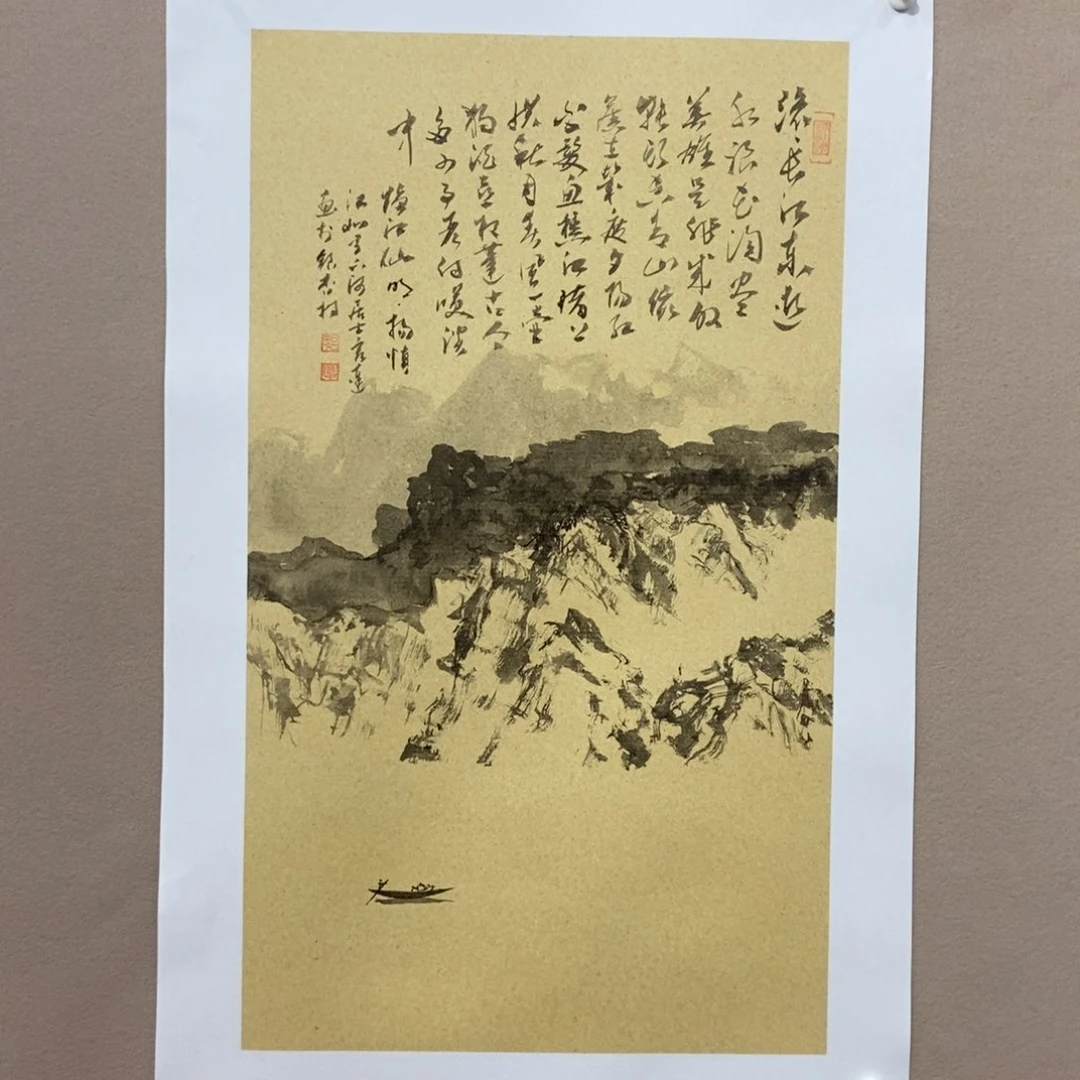 滚々长江东逝
水浪花淘尽
英雄是非成败
转头空青山依
旧在几度夕阳红
白发渔樵江渚上
惯秋月春风一壶
浊酒喜相逢古今
多少事都付笑谈
中
临江仙 明·杨慎
六河居士
画于银杏村